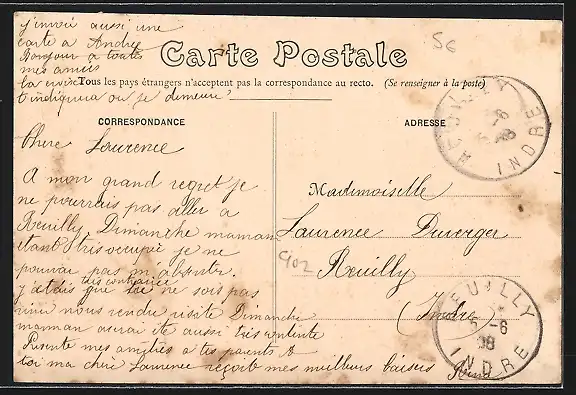 j'envoie aussi une
carte a Andree
Bonjour a toutes
mes amies
la croix
t'indiquera ou je demeure
56
Carte Postale
Tous les pays étrangers n'acceptent pas la correspondance au recto. (Se renseigner à la poste)
CORRESPONDANCE
Chere Laurence
A mon grand regret je
ne pourrais pas aller a
Reuilly Dimanche maman
etant tres occupée je ne
pouvai pas m'absenter.
j'etais très contrariée que tu ne sois pas
venu nous rendre visite Dimanche
maman aurai ete aussi très contente
Presente mes amitiés a tes parents &
toi ma cheri Laurence reçoit mes meilleurs baisers
ADRESSE
Mademoiselle
Laurence Duverger
Reuilly
(Indre)
902
REUILLY
-6
08
INDRE
REUILLY
5-6
08
INDRE